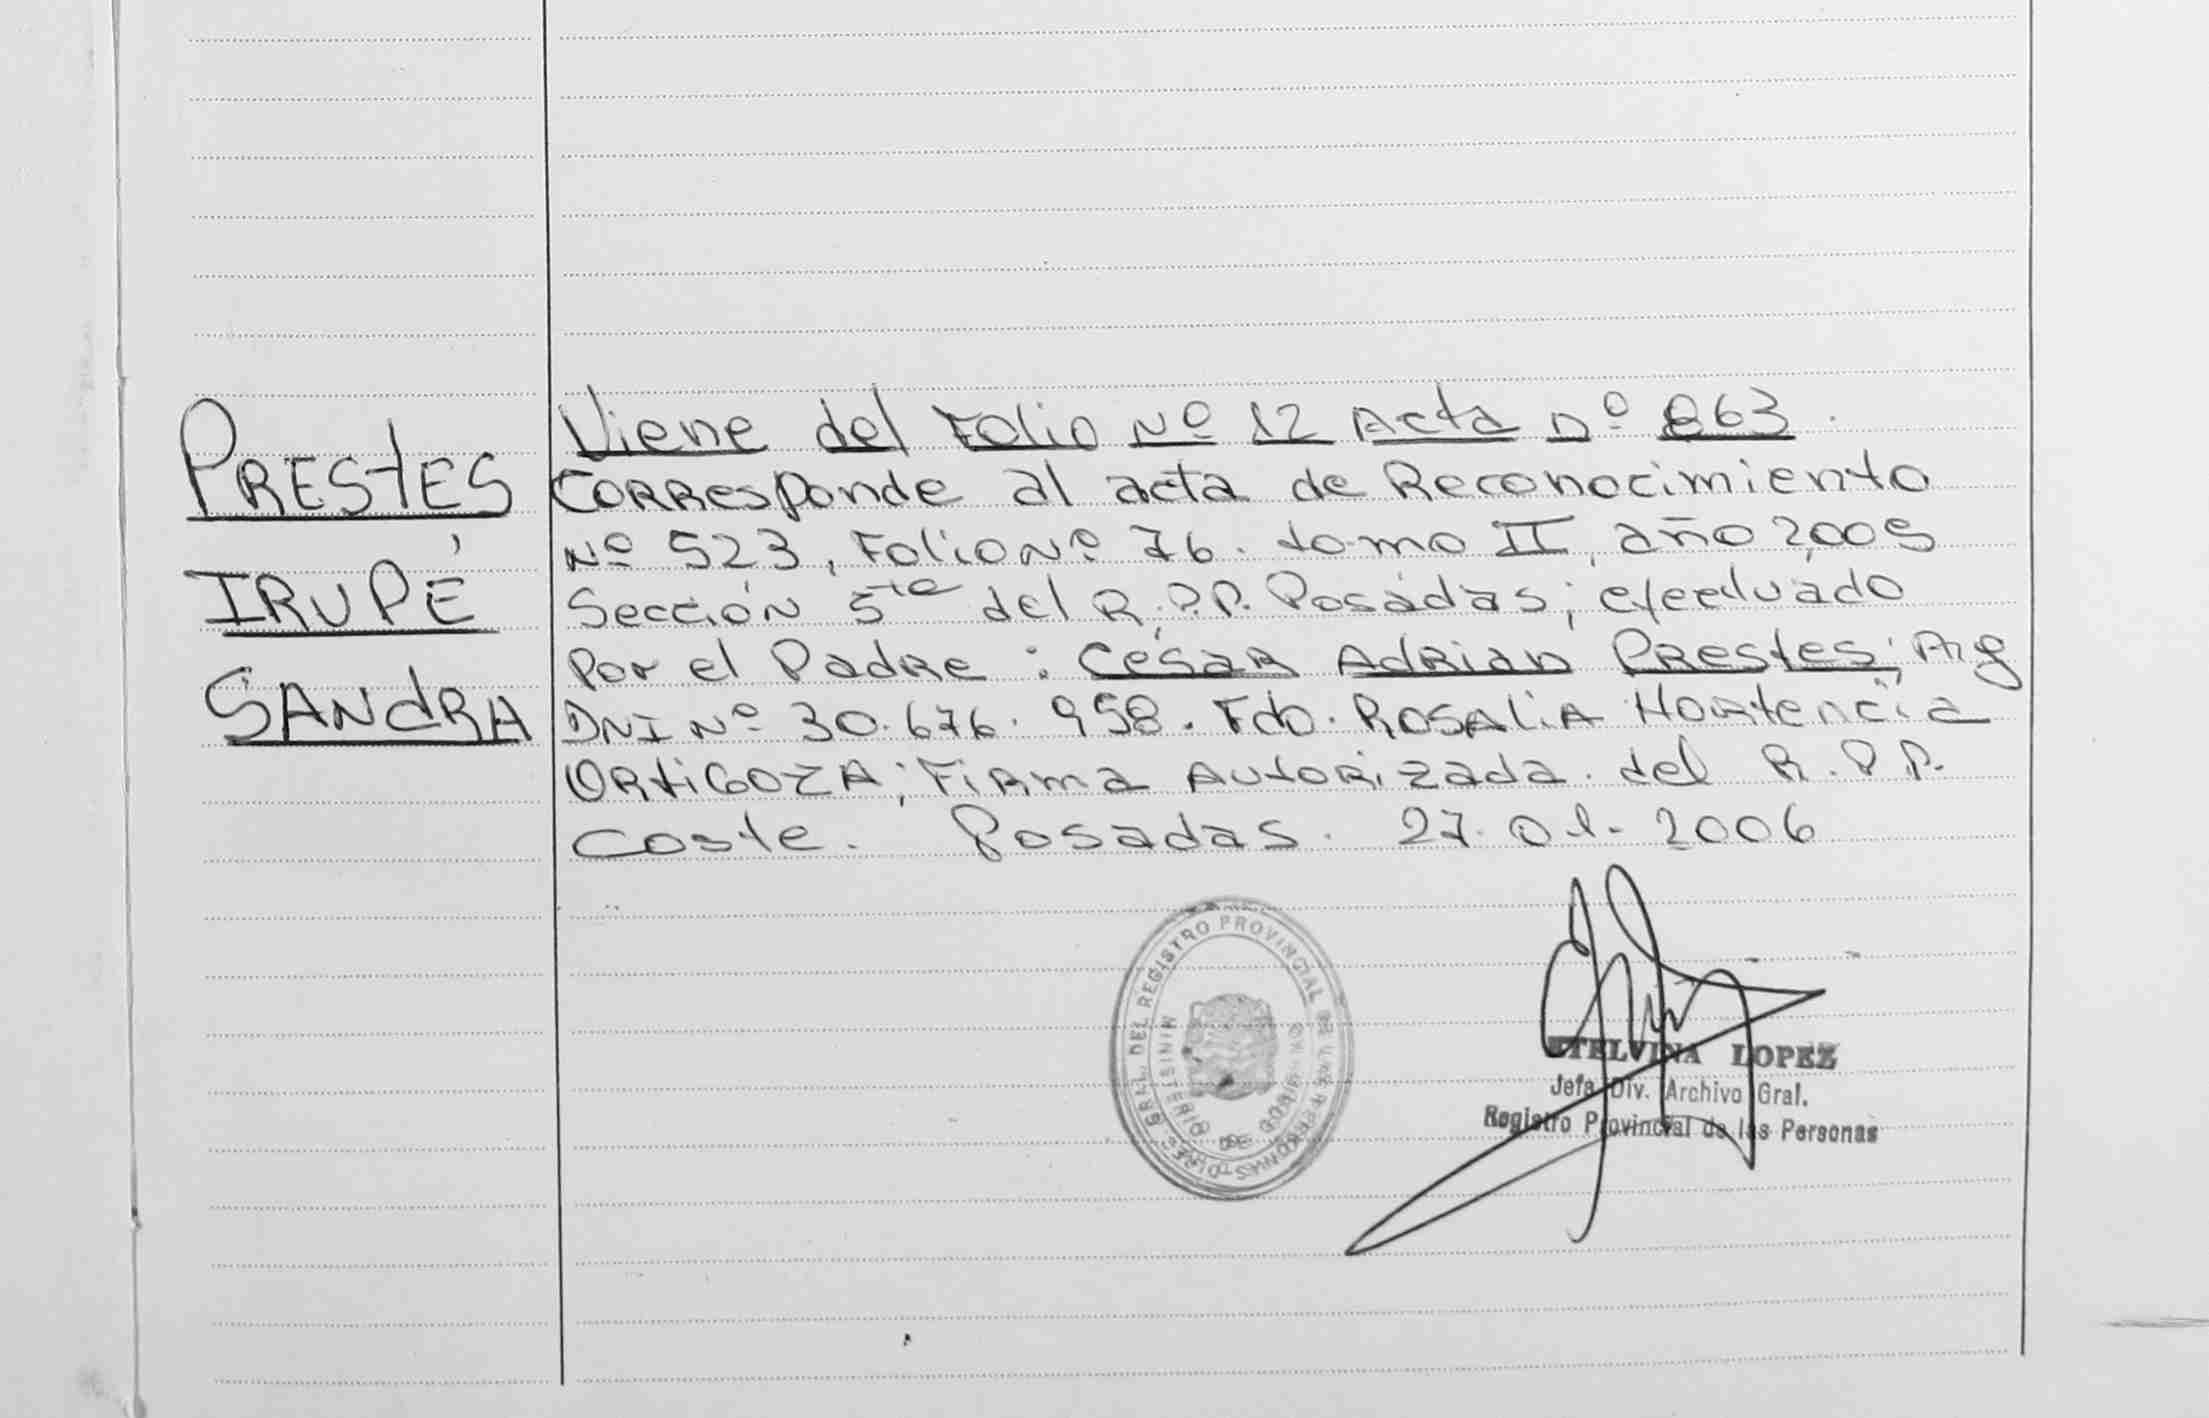 PRESTES
IRUPÉ
SANDRA
Viene del Folio Nº 12 Acta nº 863.
Corresponde al acta de Reconocimiento
Nº 523, Folio Nº 76. tomo II, año 2005
Sección 5ta del R.P.P. Posadas; efectuado
Por el Padre: César Adrian Prestes; Arg
DNI Nº 30.676.958. Fdo. Rosalia Hortencia
Ortigoza; Firma Autorizada del R.P.P.
Coste. Posadas. 27.01.2006
GRAL. DEL REGISTRO PROVINCIAL DE LAS PERSONAS
MINISTERIO DE GOBIERNO
ETELVINA LOPEZ
Jefa Div. Archivo Gral.
Registro Provincial de las Personas